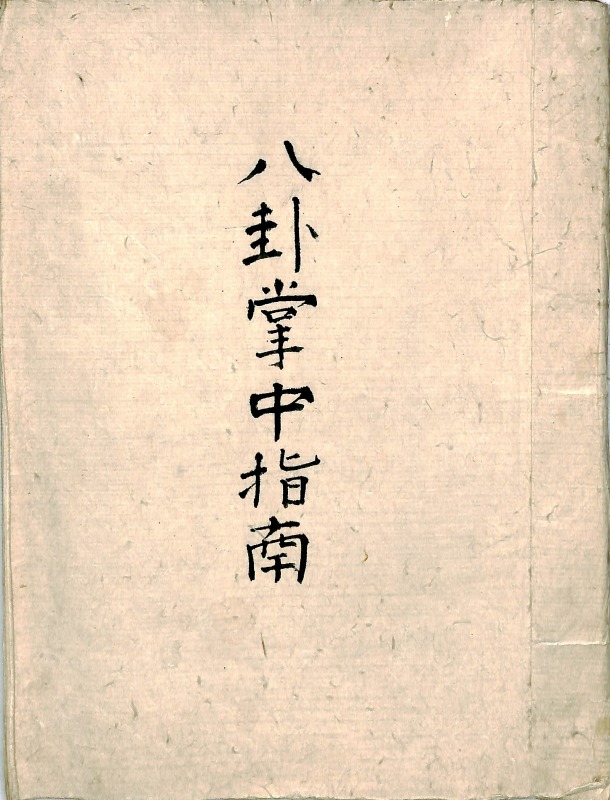 八卦掌中指南